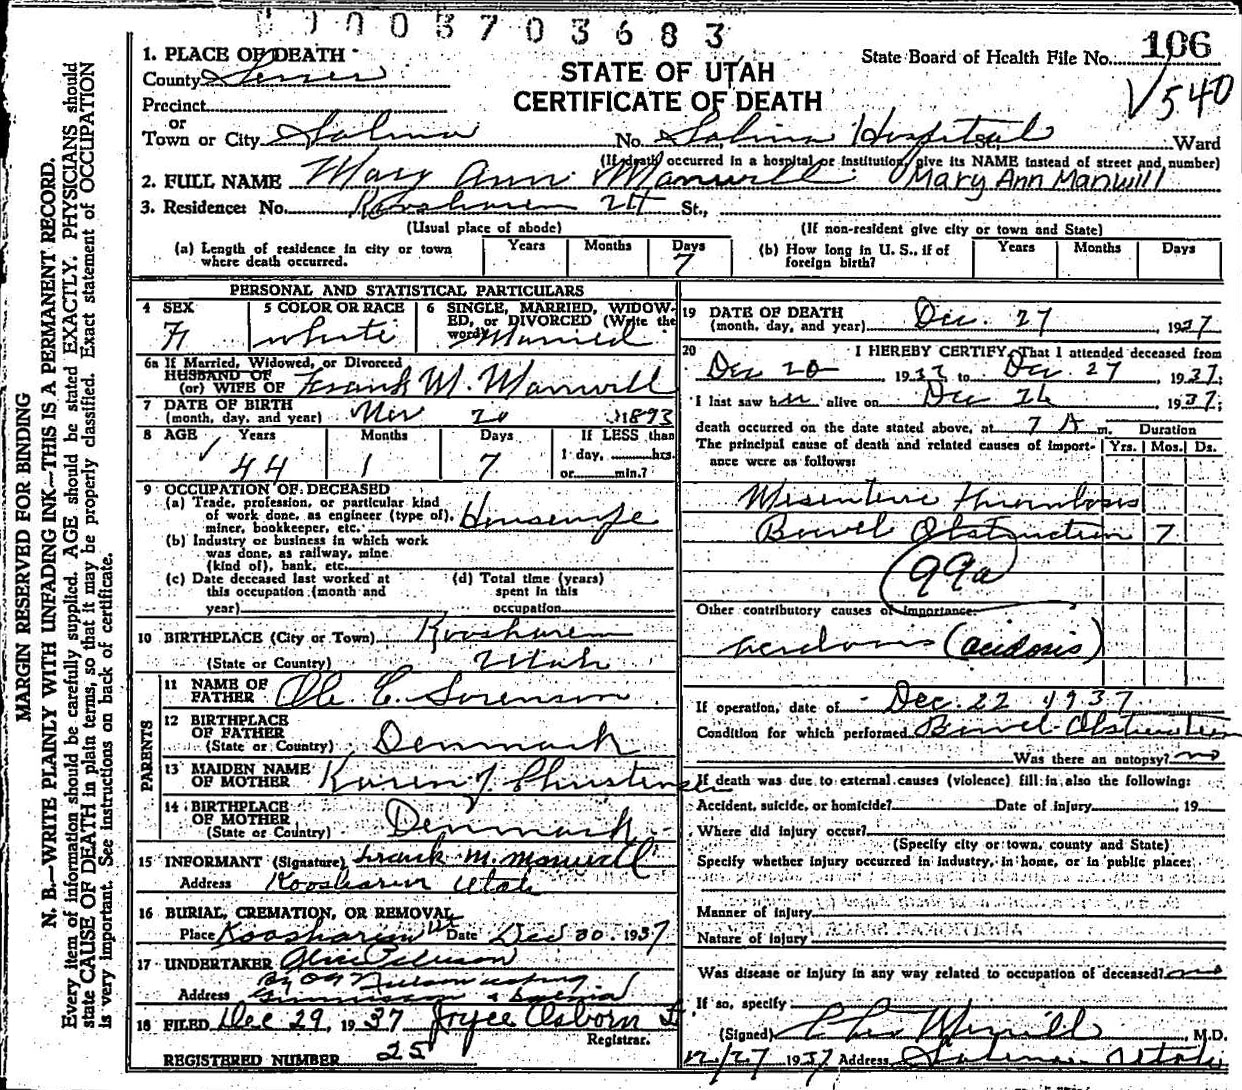 0003703683
1. PLACE OF DEATH
County Sevier
STATE OF UTAH
CERTIFICATE OF DEATH
State Board of Health File No. 106
√540
Precinct
or
Town or City Salina No. Salina Hospital St., Ward
(If death occurred in a hospital or institution, give its NAME instead of street and number)
2. FULL NAME Mary Ann Manwill Mary Ann Manwill
3. Residence: No. Koosharem Ut St.,
(Usual place of abode) (If non-resident give city or town and State)
(a) Length of residence in city or town where death occurred. Years Months Days 7
(b) How long in U. S., if of foreign birth? Years Months Days
PERSONAL AND STATISTICAL PARTICULARS
4 SEX F
5 COLOR OR RACE white
6 SINGLE, MARRIED, WIDOWED, or DIVORCED (Write the word) Married
6a If Married, Widowed, or Divorced
HUSBAND OF
(or) WIFE OF Frank M. Manwill
7 DATE OF BIRTH
(month, day, and year) Nov 20 1893
8 AGE Years Months Days If LESS than
1 day, hrs.
or min.?
44 1 7
9 OCCUPATION OF DECEASED
(a) Trade, profession, or particular kind
of work done, as engineer (type of),
miner, bookkeeper, etc. Housewife
(b) Industry or business in which work
was done, as railway, mine
(kind of), bank, etc.
(c) Date deceased last worked at
this occupation (month and
year)
(d) Total time (years)
spent in this
occupation
10 BIRTHPLACE (City or Town) Koosharem
(State or Country) Utah
PARENTS
11 NAME OF
FATHER Ole C. Sorenson
12 BIRTHPLACE
OF FATHER
(State or Country) Denmark
13 MAIDEN NAME
OF MOTHER Karen J. Christensen
14 BIRTHPLACE
OF MOTHER
(State or Country) Denmark
15 INFORMANT (Signature) Frank M. Manwill
Address Koosharem Utah
16 BURIAL, CREMATION, OR REMOVAL
Place Koosharem Ut Date Dec 30, 1937
17 UNDERTAKER
Address
18 FILED Dec 29, 1937 Joyce Osborn
Registrar.
REGISTERED NUMBER 25
19 DATE OF DEATH
(month, day, and year) Dec. 27, 1937
20 I HEREBY CERTIFY, That I attended deceased from
Dec 20 1937 to Dec. 27 1937.
I last saw her alive on Dec 26 1937;
death occurred on the date stated above, at 7 A m.
Duration
The principal cause of death and related causes of importance were as follows: Yrs. Mos. Ds.
Mesenteric Thrombosis
Bowel Obstruction 7
99a
Other contributory causes of importance:
acidosis (acidosis)
If operation, date of Dec. 22 1937
Condition for which performed Bowel Obstruction
Was there an autopsy? no
If death was due to external causes (violence) fill in also the following:
Accident, suicide, or homicide? Date of injury 19
Where did injury occur?
(Specify city or town, county and State)
Specify whether injury occurred in industry, in home, or in public place:
Manner of injury
Nature of injury
Was disease or injury in any way related to occupation of deceased? no
If so, specify
(Signed) Merrill M.D.
12/27 1937 Address Salina Utah
MARGIN RESERVED FOR BINDING
N. B.—WRITE PLAINLY WITH UNFADING INK—THIS IS A PERMANENT RECORD.
Every item of information should be carefully supplied. AGE should be stated EXACTLY. PHYSICIANS should
state CAUSE OF DEATH in plain terms, so that it may be properly classified. Exact statement of OCCUPATION
is very important. See instructions on back of certificate.